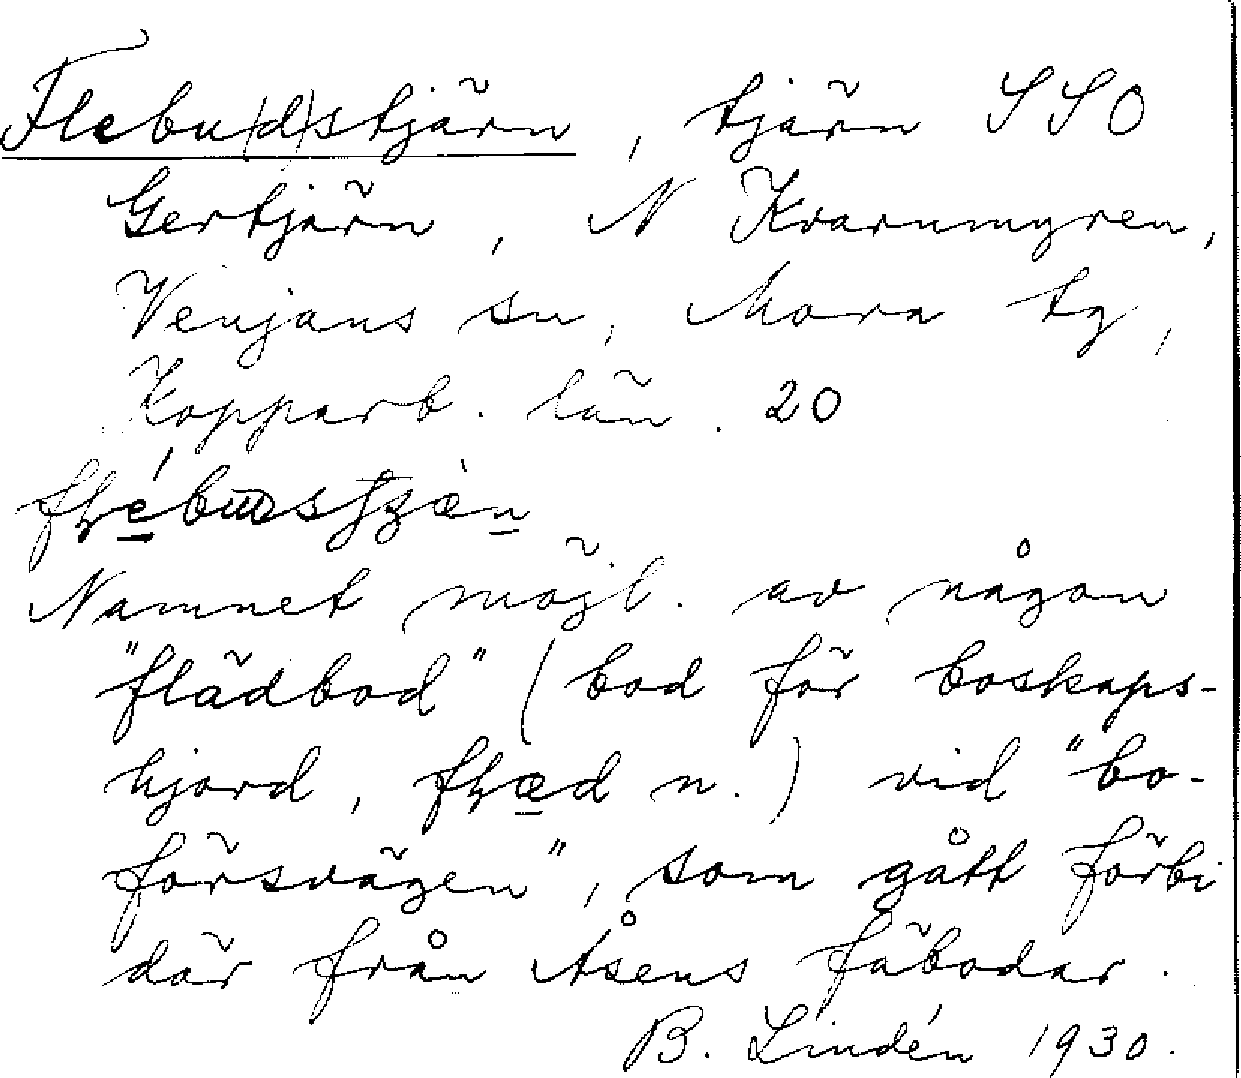 Flebu(d)stjärn, tjärn SSO
Gertjärn, N Kvarnmyren,
Venjans sn, Mora tg,
Kopparb. län. 20
Namnet möjl. av någon
"flädbod" (bod för boskaps-
hjord, n.) vid "bo-
försvägen", som gått förbi
där från Åsens fäbodar.
B. Lindén 1930.